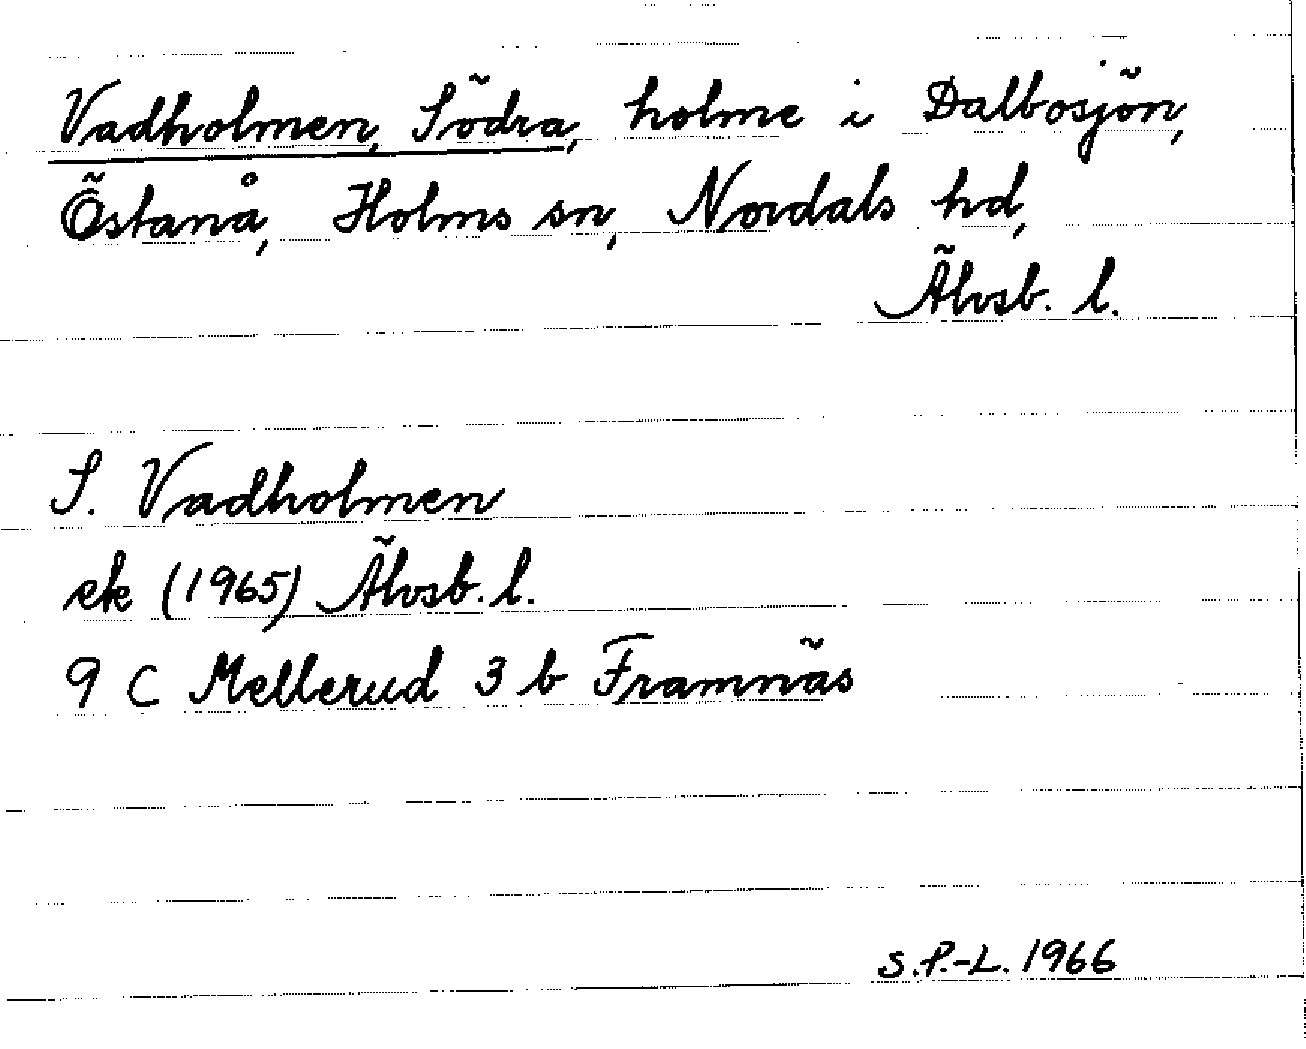 Vadholmen, Södra, holme i Dalbosjön,
Östanå, Holms sn, Nordals hd,
Älvsb. l.
S. Vadholmen
ek (1965) Älvsb. l.
9 C Mellerud 3 b Framnäs
S.P.-L. 1966